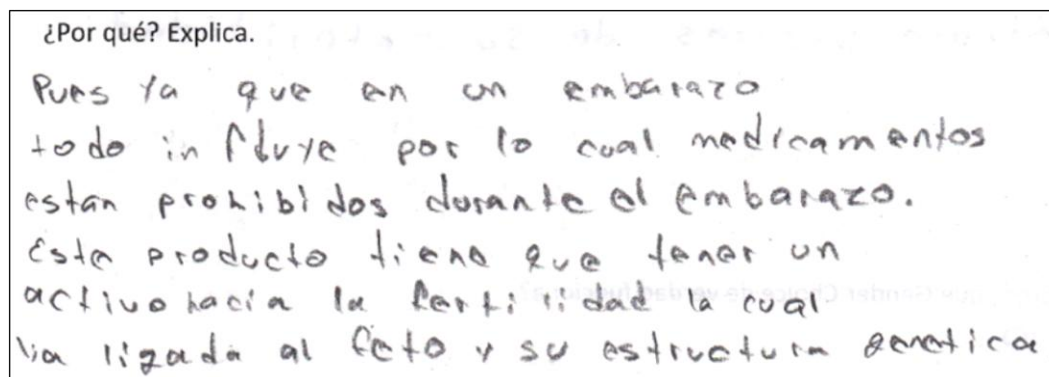 ¿Por qué? Explica.
Pues ya que en un embarazo
todo influye por lo cual medicamentos
estan prohibidos durante el embarazo.
Este producto tiene que tener un
activo hacia la fertilidad la cual
va ligada al feto y su estructura genetica